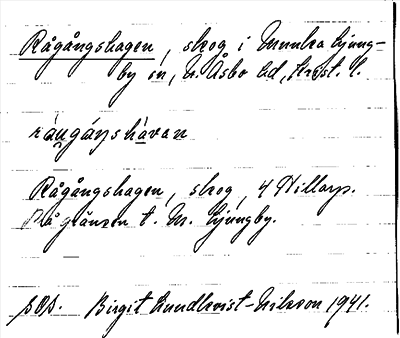 Rågångshagen, skog i Munka Ljung-
by sn, N. Åsbo hd, Krist. l.
råŋgáŋshàvan
Rågångshagen, skog, 4 Hillarp.
På gränsen t. M. Ljungby.
Birgit Lundkvist-Nilsson 1941.